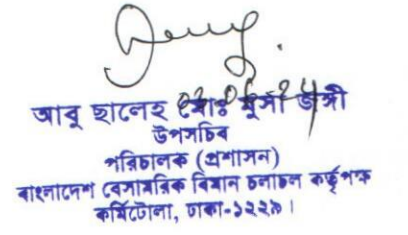 আবু ছালেহ মোঃ মুসা জঙ্গী
উপসচিব
পরিচালক (প্রশাসন)
বাংলাদেশ বেসামরিক বিমান চলাচল কর্তৃপক্ষ
কুর্মিটোলা, ঢাকা-১২২৯।